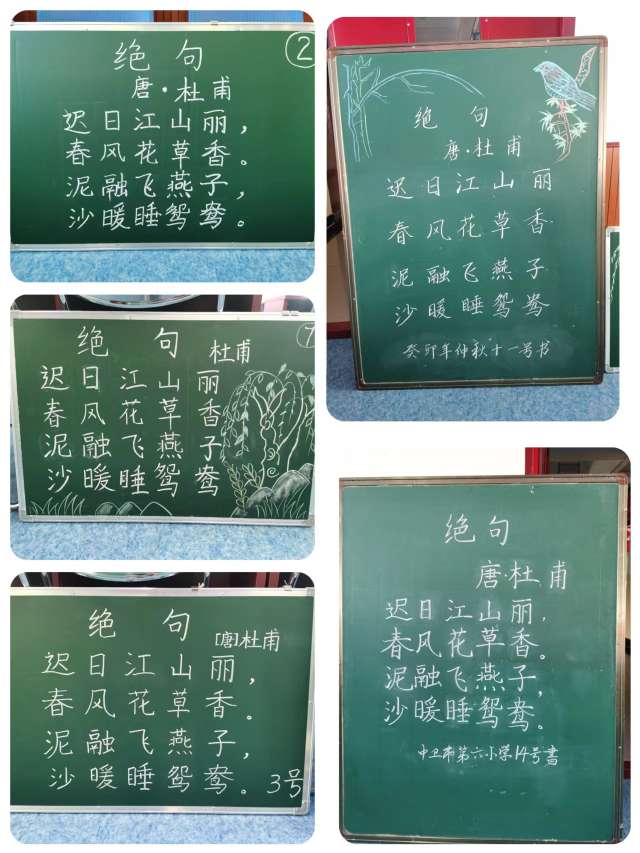 ②
绝句
唐·杜甫
迟日江山丽，
春风花草香。
泥融飞燕子，
沙暖睡鸳鸯。
7
绝句
杜甫
迟日江山丽
春风花草香
泥融飞燕子
沙暖睡鸳鸯
绝句
[唐]杜甫
迟日江山丽，
春风花草香。
泥融飞燕子，
沙暖睡鸳鸯。
3号
绝句
唐·杜甫
迟日江山丽
春风花草香
泥融飞燕子
沙暖睡鸳鸯
癸卯年仲秋十一号书
绝句
唐·杜甫
迟日江山丽，
春风花草香。
泥融飞燕子，
沙暖睡鸳鸯。
中卫市第六小学14号書